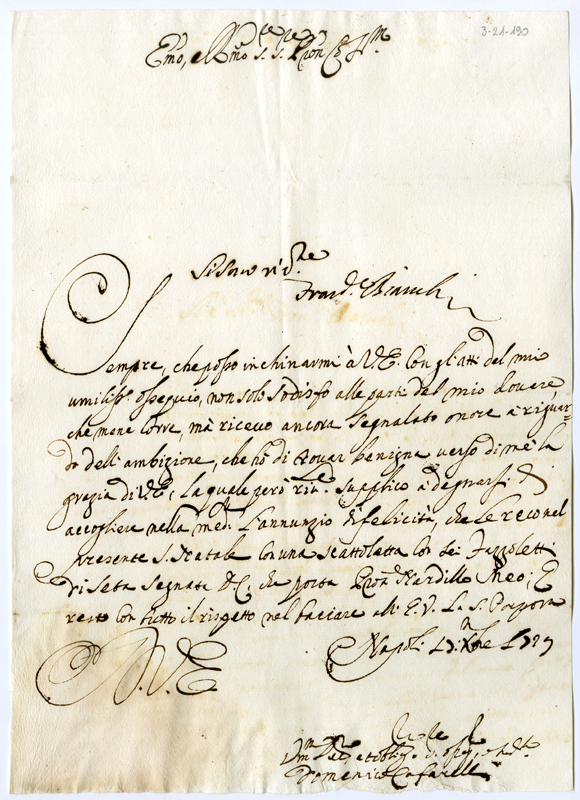 3-21-190
Emo,
Bianchi
Sempre, che posso inchinarmi à V.E. con gl'atti del mio
umiliss.º ossequio, non solo sodisfo alle parti del mio dovere,
che me ne corre, mà ricevo ancora segnalato onore à riguar-
do dell'ambizione, che hò di trovar benigna verso di mè la
grazia di V.E., la quale però supplico à degnarsi di
accogliere nella med. l'annunzio di felicità, che le reco nel
presente S. Natale con una scattoletta con sei fazzoletti
di seta segnata D.C. che porta Nardillo Meo; E
resto con tutto il rispetto nel baciare all'E.V. la S. Porpora
Napoli
V.E.
Domenico Cafarelli